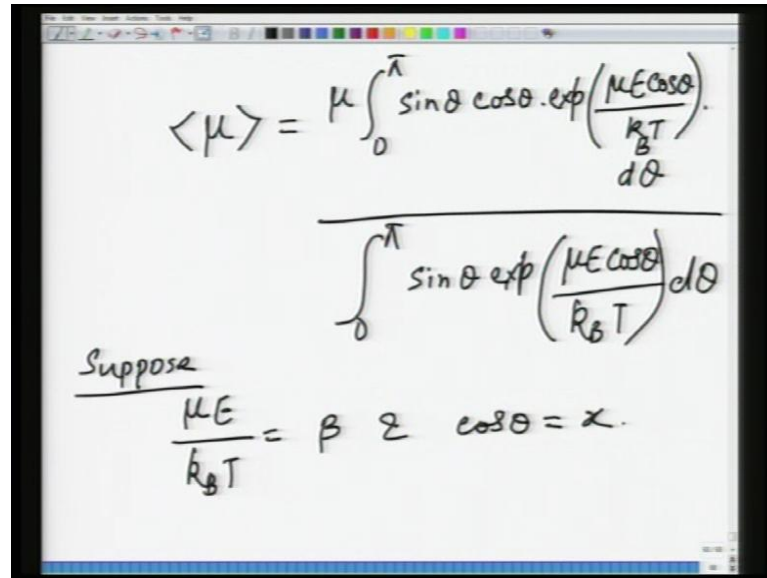 File Edit View Insert Actions Tools Help
<μ> = μ∫₀^π sinθ cosθ. exp(μE cosθ / k_B T). dθ
∫₀^π sinθ exp(μE cosθ / k_B T) dθ
Suppose
μE / k_B T = β & cosθ = x.